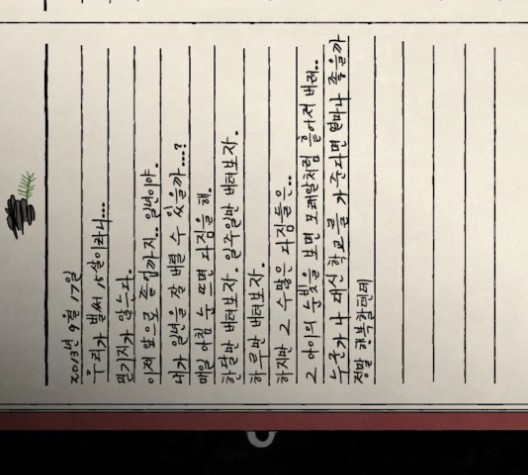 2013년 9월 17일
우리가 벌써 15살이라니...
믿기지가 않는다.
이제 앞으로 졸업까지.. 일년이야.
내가 일년을 잘 버틸 수 있을까...?
매일 아침 눈 뜨면 다짐을 해.
한달만 버텨보자. 일주일만 버텨보자.
하루만 버텨보자.
하지만 그 수많은 다짐들은..
그 아이의 눈빛을 보면 모래알처럼 흩어져 버려..
누군가 나 대신 학교를 가준다면 얼마나 좋을까
정말 행복할텐데